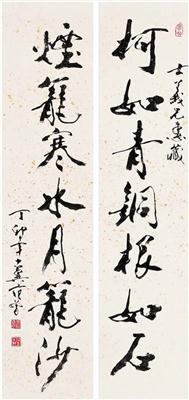 士義兄藏
柯如青銅根如石
煙籠寒水月籠沙
丁卯年十翼范曾